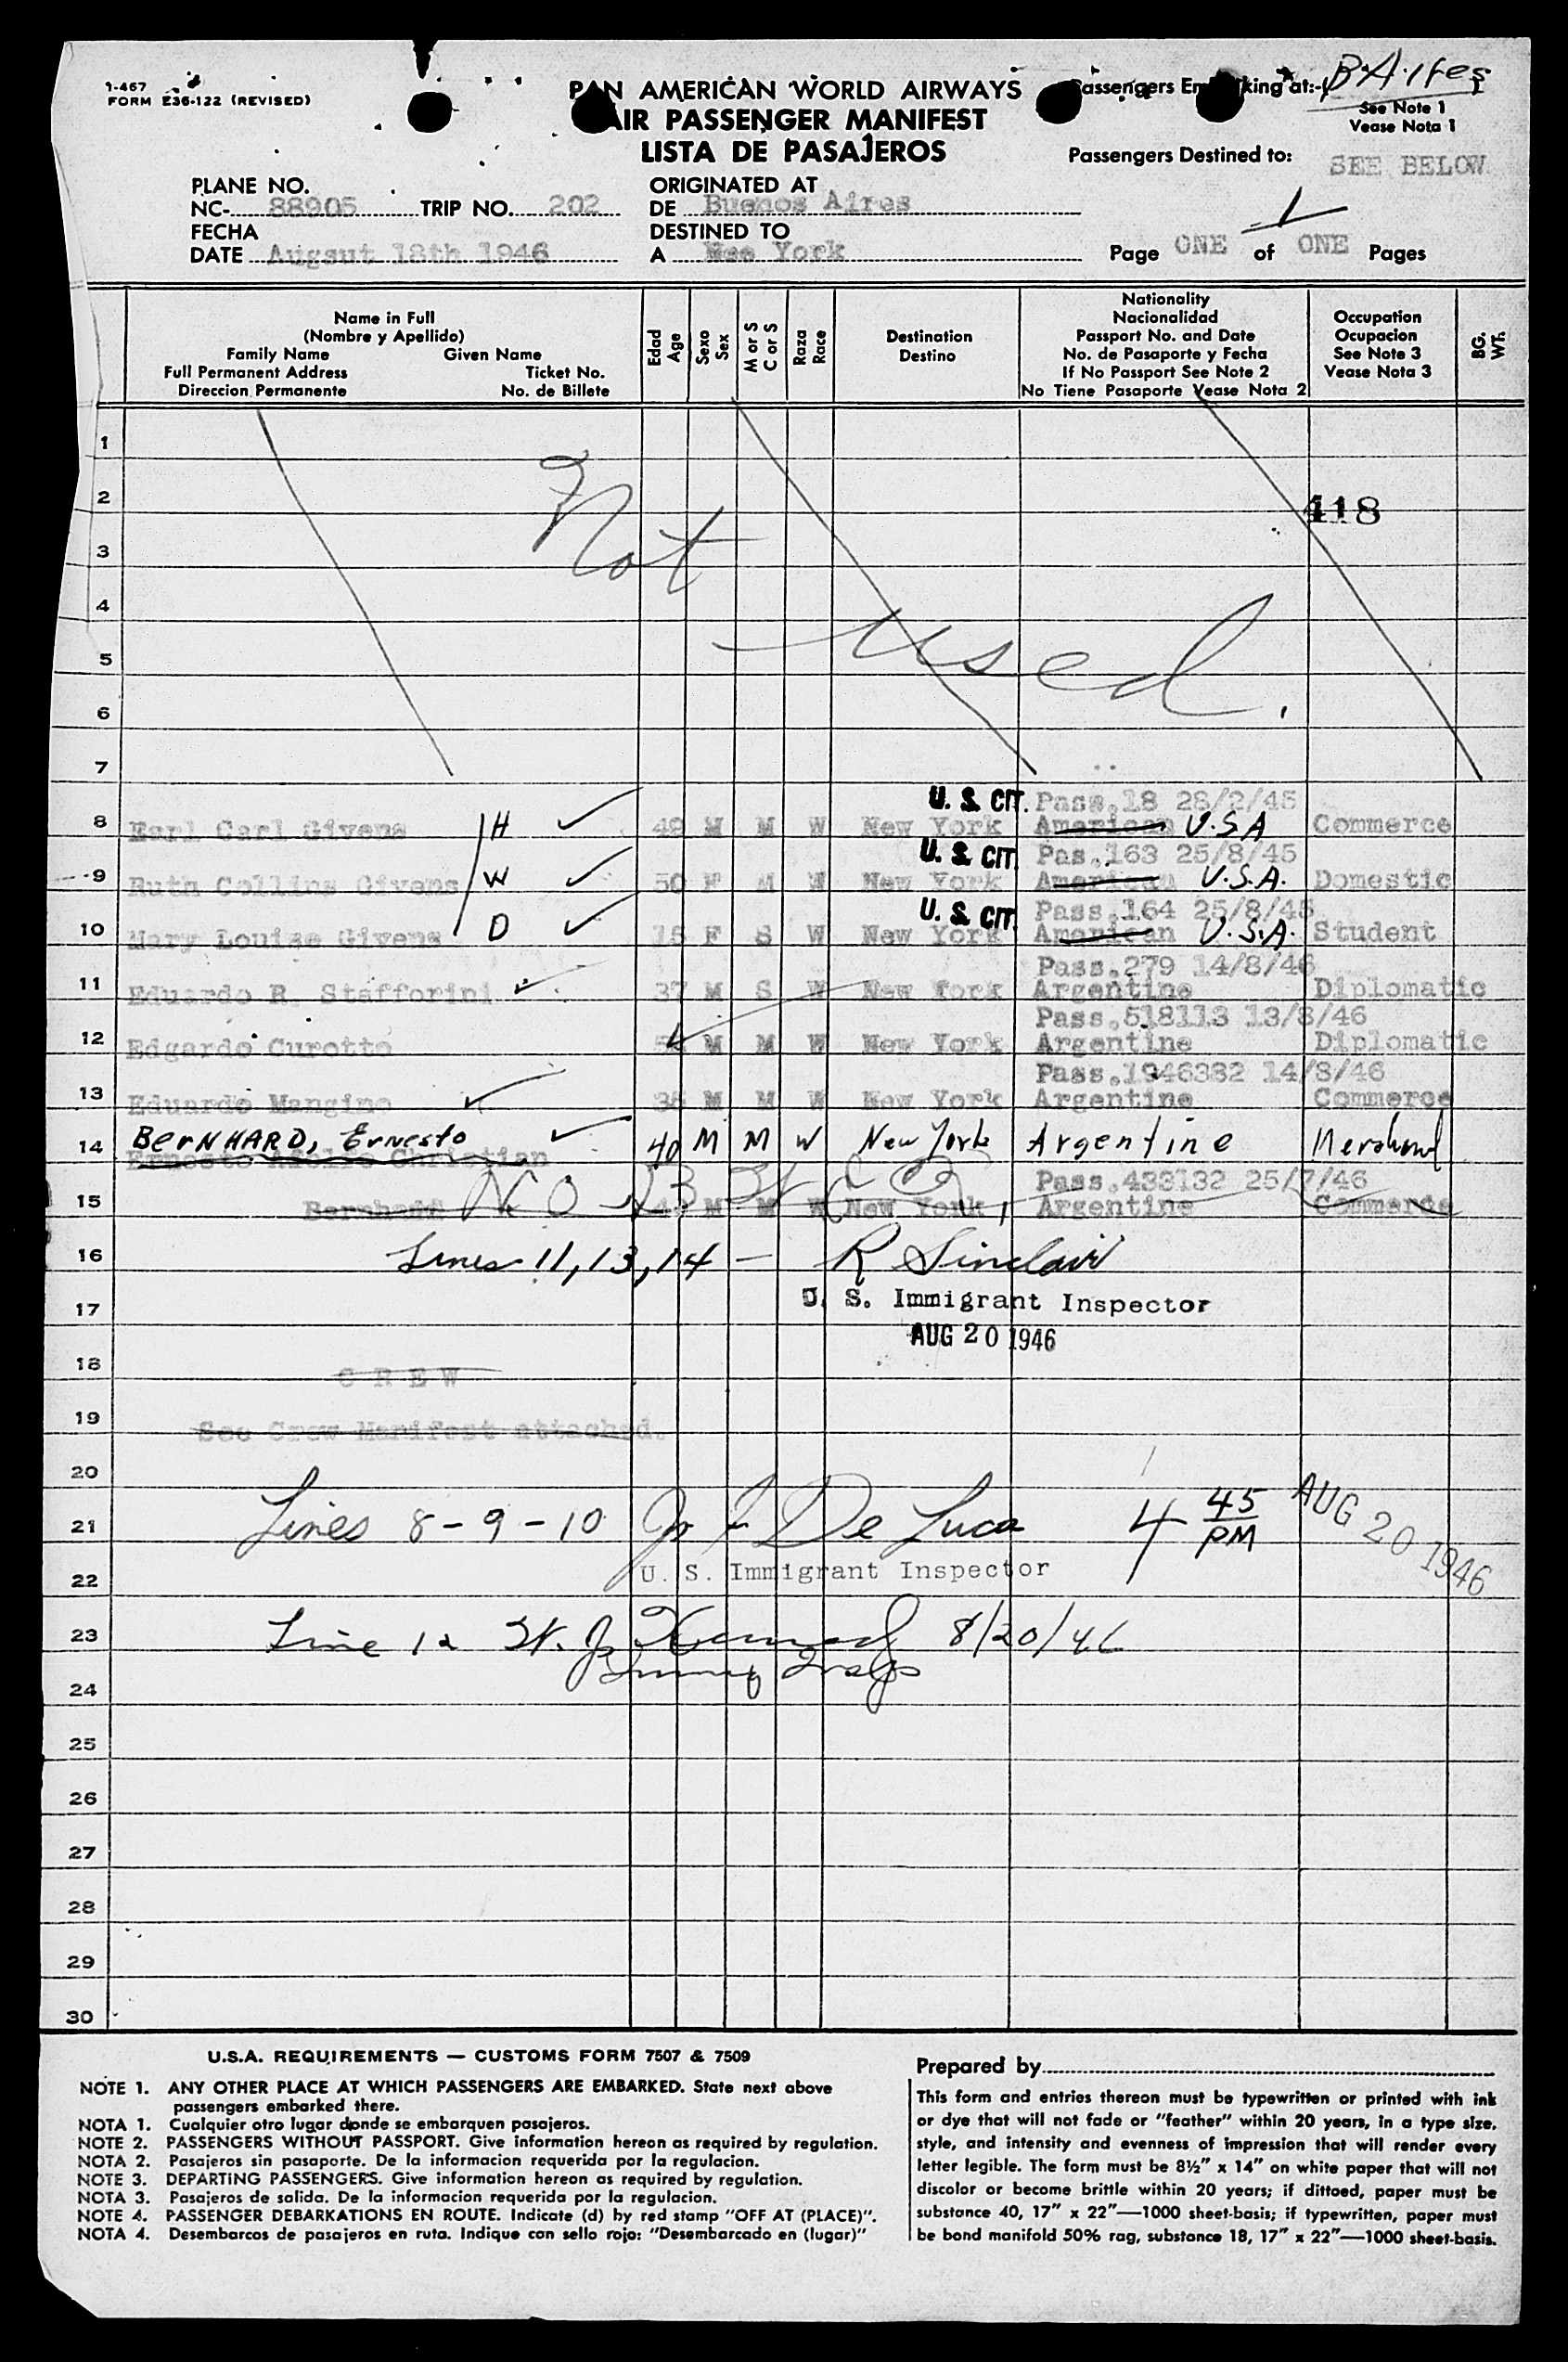 1-467
FORM E36-122 (REVISED)
PAN AMERICAN WORLD AIRWAYS
AIR PASSENGER MANIFEST
LISTA DE PASAJEROS
Passengers Embarking at:- B.Aires
See Note 1
Vease Nota 1
Passengers Destined to: SEE BELOW
PLANE NO.
NC- 88905 TRIP NO. 202
FECHA
DATE Augsut 18th 1946
ORIGINATED AT
DE Buenos Aires
DESTINED TO
A New York
Page ONE of ONE Pages
Name in Full
(Nombre y Apellido)
Family Name Given Name
Full Permanent Address Ticket No.
Direccion Permanente No. de Billete
Edad Age
Sexo Sex
M or S C or S
Raza Race
Destination
Destino
Nationality
Nacionalidad
Passport No. and Date
No. de Pasaporte y Fecha
If No Passport See Note 2
No Tiene Pasaporte Vease Nota 2
Occupation
Ocupacion
See Note 3
Vease Nota 3
BG. WT.
1
2 418
3 Not
4
5 used.
6
7
U. S. CIT. Pass.18 28/2/45
8 Earl Carl Givens H 49 M M W New York American U.S.A Commerce
U. S. CIT. Pas.163 25/8/45
9 Ruth Collins Givens W 50 F M W New York American U.S.A. Domestic
U. S. CIT. Pass.164 25/8/45
10 Mary Louise Givens D 15 F S W New York American U.S.A. Student
Pass.279 14/8/46
11 Eduardo R. Stafforini 37 M S W New York Argentine Diplomatic
Pass.518113 13/8/46
12 Edgardo Curotto M M W New York Argentine Diplomatic
Pass.1946382 14/8/46
13 Eduardo Mangino 38 M M W New York Argentine Commerce
14 BerNHARD, Ernesto 40 M M W New York Argentine Merchant
Ernesto Adolfo Christian
Pass.433132 25/7/46
15 Bernhard M M W New York Argentine Commerce
16 Lines 11, 13, 14 — R Sinclair
17 U. S. Immigrant Inspector
AUG 20 1946
18 C R E W
19 See Crew Manifest attached.
20
21 Lines 8 - 9 - 10 De Luca 4 45 PM AUG 20 1946
22 U. S. Immigrant Inspector
23 Line 12 8/20/46
Immig Insp
24
25
26
27
28
29
30
U.S.A. REQUIREMENTS — CUSTOMS FORM 7507 & 7509
NOTE 1. ANY OTHER PLACE AT WHICH PASSENGERS ARE EMBARKED. State next above
passengers embarked there.
NOTA 1. Cualquier otro lugar donde se embarquen pasajeros.
NOTE 2. PASSENGERS WITHOUT PASSPORT. Give information hereon as required by regulation.
NOTA 2. Pasajeros sin pasaporte. De la informacion requerida por la regulacion.
NOTE 3. DEPARTING PASSENGERS. Give information hereon as required by regulation.
NOTA 3. Pasajeros de salida. De la informacion requerida por la regulacion.
NOTE 4. PASSENGER DEBARKATIONS EN ROUTE. Indicate (d) by red stamp "OFF AT (PLACE)".
NOTA 4. Desembarcos de pasajeros en ruta. Indique con sello rojo: "Desembarcado en (lugar)"
Prepared by
This form and entries thereon must be typewritten or printed with ink
or dye that will not fade or "feather" within 20 years, in a type size,
style, and intensity and evenness of impression that will render every
letter legible. The form must be 8½" x 14" on white paper that will not
discolor or become brittle within 20 years; if dittoed, paper must be
substance 40, 17" x 22"—1000 sheet-basis; if typewritten, paper must
be bond manifold 50% rag, substance 18, 17" x 22"—1000 sheet-basis.